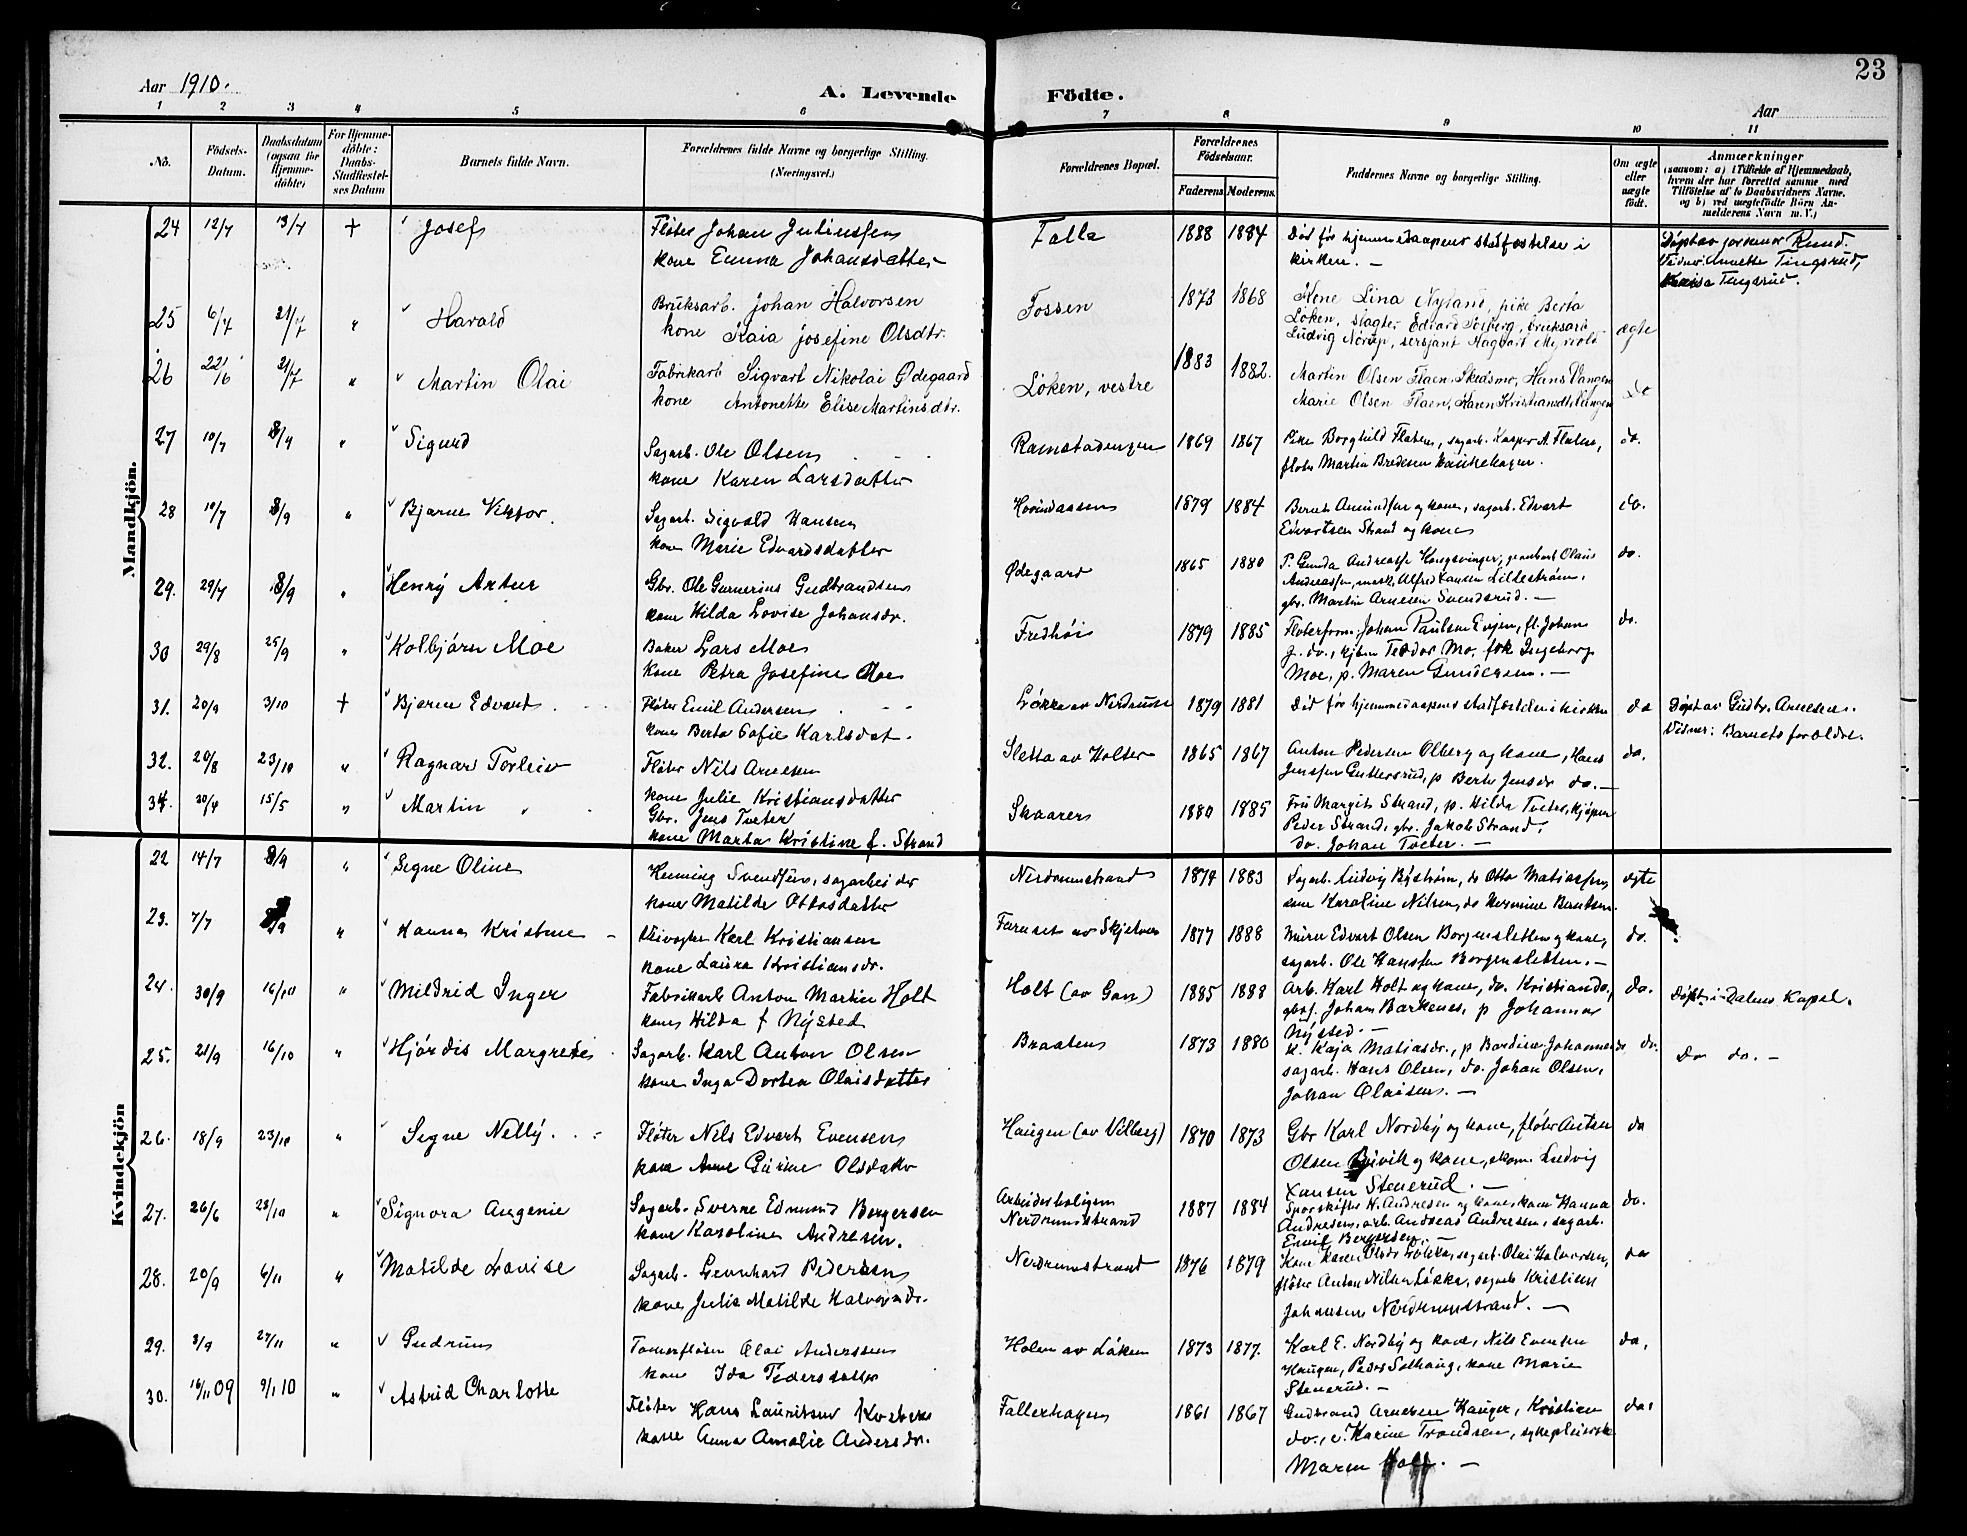 23
Aar 1910.
A. Levende Födte.
Aar
1 2 3 4 5 6 7 8 9 10 11
No.
Födsels-Datum.
Daabsdatum (ogsaa for Hjemme-döbte)
For Hjemme-döbte: Daabs-Stadfæstel-ses Datum
Barnets fulde Navn.
Forældrenes fulde Navne og borgerlige Stilling. (Næringsvei.)
Forældrenes Bopæl.
Forældrenes Födselsaar.
Faderens Moderens.
Faddernes Navne og borgerlige Stilling.
Om ægte eller uægte födt.
Anmærkninger
(saasom: a) i Tilfælde af Hjemmedaab, hvem der har forrettet samme med Tilföielse af to Daabsvidners Navne. og b) ved uægtefödte Börn An-melderens Navn m. V.)
Mandkjön.
24 12/7 13/7 + Josef Fløter Johan Juliussen Falla 1888 1884 Død før hjemmedaapens stadfæstelse i Døpt av jordmor Ruud.
kone Emma Johansdatter kirken. — Vidner: Annette Tingsrud,
Tingsrud.
25 6/7 21/7 " Harald Bruksarb. Johan Halvorsen Fossen 1873 1868 Kone Lina Nyland, pike Berta
kone Kaia Josefine Olsdtr. Løken, slagter Edvard Solberg, bruksarb ægte
Ludvig Nerup, sersjant Hagbart Myrvold
26 22/6 21/7 " Martin Olai Fabrikarb Sigvart Nikolai Ødegaard Løken, vestre 1883 1882. Martin Olsen Flaen, Skedsmo, Hans Vangen
kone Antonette Elise Martinsdtr. Marie Olsen Flaen, Karen Kristiansdtr Vangen do
27 10/7 Sigurd Sagarb. Ole Olsen Ramstadengen 1869 1867 Pike Borghild Flaten, sagarb. Kasper A. Flaten, do.
kone Karen Larsdatter fløter Martin Bredesen Haukehagen.
28 10/7 8/9 " Bjarne Viktor. Sagarb. Sigvald Hansen Hovindaasen 1879 1884 Bernt Amundsen og kone, sagarb. Edvart do.
kone Marie Edvardsdatter Edvartsen Strand og kone
29. 29/7 8/9 " Henry Artur Gbr. Ole Gunerius Gudbrandsen Ødegaard 1865 1880 P. Gunda Andreasse Kongsvinger, Olaus do.
kone Hilda Lovise Johansdr. Andreassen, mask. Alfred Hansen Lillestrøm,
gbr. Martin Arnesen Svendsrud. —
30 29/8 25/9 " Kolbjørn Moe Baker Lars Moe Fredhøi 1879 1885 Fløterform. Johan Paulsen Evjen, fl. Johan do.
kone Petra Josefine Moe J. do., kjøbm Teodor Mo, frk Ingeborg
Moe, p. Maren Gundersen. —
31. 20/9 3/10 + Bjarne Edvart Fløter Emil Andersen Løkka av Nerdrum 1879 1881 Død før hjemmedaapens stadfæstelse i kirken do Døpt av Gudbr. Arnesen.
kone Berta Sofie Karlsdat. Vidner: Barnets forældre.
32. 20/8 23/10 " Ragnar Torleiv Fløter Nils Arnesen Sletta av Holter 1865 1867 Anton Pedersen Olberg og kone, Hans do.
kone Julie Kristiansdatter Jenssen Guttersrud, p Berte Jensdr do. —
34. 20/4 15/5 " Martin Gbr. Jens Tveter Skaarer 1880 1885 Fru Margit Strand, p. Hilda Tveter, kjøpm
kone Marta Kristine f. Strand Peder Strand, gbr. Jakob Strand,
do. Johan Tveter. —
Kvindekjön
22 14/7 8/9 " Signe Oline Henning Svendsen, sagarbeider Nerdrumstrand 1874 1883 Sagarb. Ludvig Byström, do Otto Matiassen, ægte
kone Matilde Ottosdatter kone Karoline Nilsen, do Hermine Berntsen.
23. 7/7 8/9 " Hanna Kristine Karl Kristiansen Faruset av Skjetven 1877 1888 Murer Edvart Olsen Borgensletten og kone, do.
kone Laura Kristiansdr. sagarb. Ole Hanssen Borgensletten. —
24. 30/9 16/10 " Mildrid Inger Fabrikarb Anton Martin Holt Holt (av Gan) 1885 1888 Arb. Karl Holt og kone, do. Kristian do., do. Døpt i Dalens Kapel.
kone Hilda f Nysted Johan Barkenes, p Johanna
Nysted. —
25. 21/9 16/10 " Hjørdis Margrete Sagarb. Karl Anton Olsen Braaten 1873 1880 K. Kaja Matiasdr., p Bordine Johannesdr do. Do do. —
kone Inga Dortea Olaisdatter sagarb. Hans Olsen, do. Johan Olsen,
Johan Olaisen. —
26. 18/9 23/10 " Signe Nelly. Fløter Nils Edvart Evensen Haugen (av Vilberg) 1870 1873 Gbr Karl Nordby og kone, fløter Anton do
kone Anne Gurine Olsdatr Olsen og kone, skom. Ludvig
Hansen Stenerud. —
27. 26/6 23/10 " Signora Augenie Sagarb. Sverre Edmund Borgersen Arbeiderboligen Nerdrumstrand 1887 1884 Sporskifter H. Andresen og kone, kone Hanna do.
kone Karoline Andresen. Andresen, arb. Andreas Andresen, sagarb.
Emil Borgersen. —
28. 20/9 6/11 " Matilde Lovise Sagarb. Leonhard Pedersen Nerdrumstrand 1876 1879 Kone Karen Olsdr Løkka, sagarb. Olai Halvorsen, do
kone Julie Matilde Halvorsdr. fløter Anton Nilsen Løkka, sagarb Kristian
Johansen Nerdrumstrand. —
29. 3/9 27/11 " Gudrun Tømmerfløter Olai Anderssen Holen av Løken 1873 1877. Karl E. Nordby og kone, Nils Evensen do,
kone Ida Pedersdatter Haugen, Peder Solhaug, kone Marie
Stenerud. —
30. 16/11 09 9/1 10 " Astrid Charlotte Fløter Hans Lauritsen Fallerhagen 1861 1867 Gudbrand Arnesen Hauger, Kristian do,
kone Anna Amalie Andersdr. do., Karine Trondsen, sykepleierske
Maren Holt. —